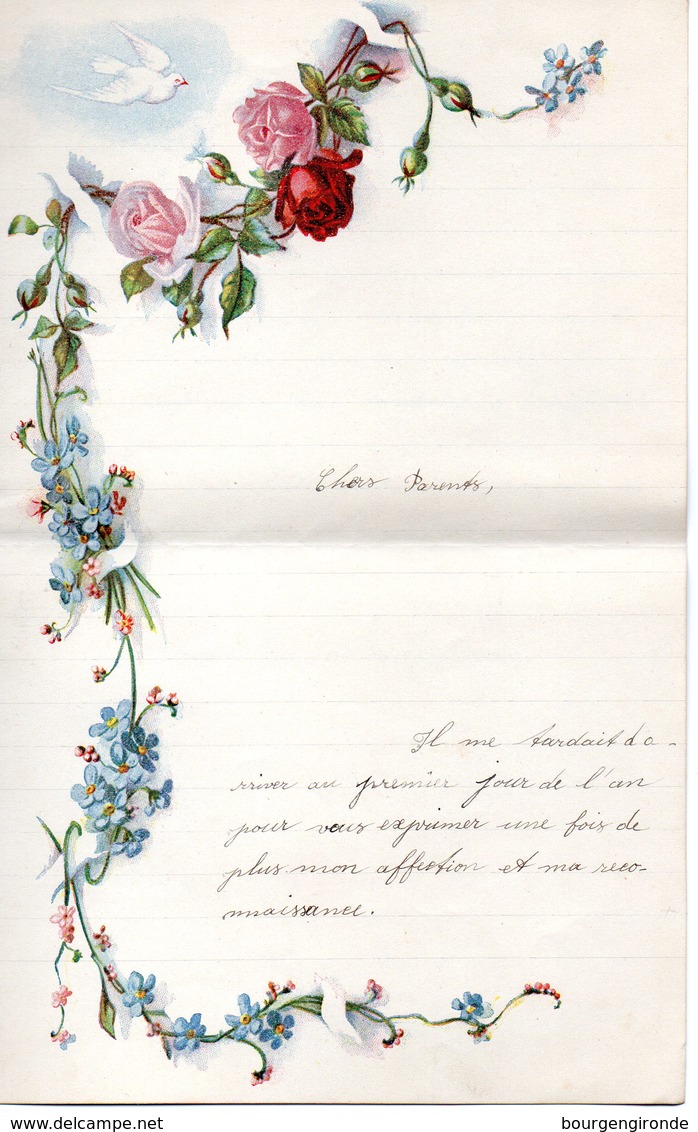 Chers Parents,
Il me tardait d a-
rriver au premier jour de l'an
pour vous exprimer une fois de
plus mon affection et ma reco-
nnaissance.
www.delcampe.net
bourgengironde